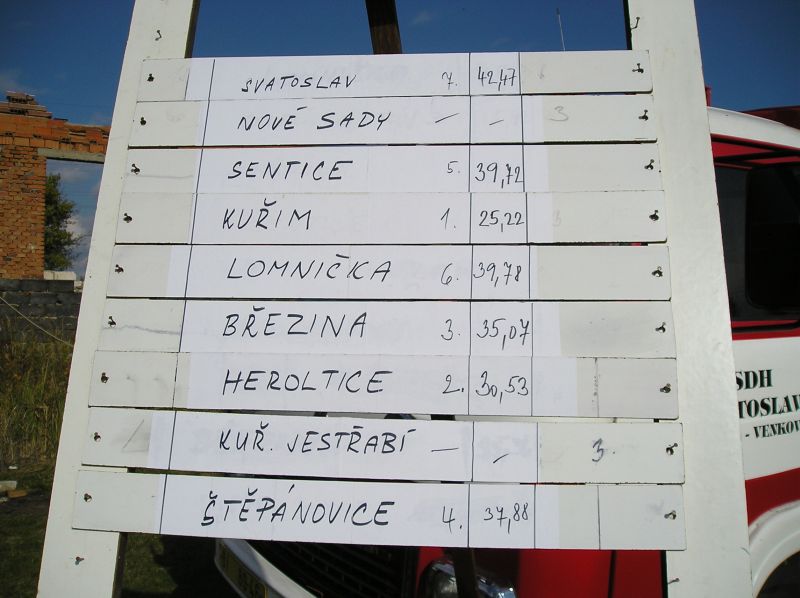 SVATOSLAV 7. 42,47
NOVÉ SADY — — 3
SENTICE 5. 39,72
KUŘIM 1. 25,22 3
LOMNIČKA 6. 39,78
BŘEZINA 3. 35,07
HEROLTICE 2. 30,53
KUŘ. JESTŘABÍ — — 3.
ŠTĚPÁNOVICE 4. 37,88
SDH
TOSLAV
- VENKOV